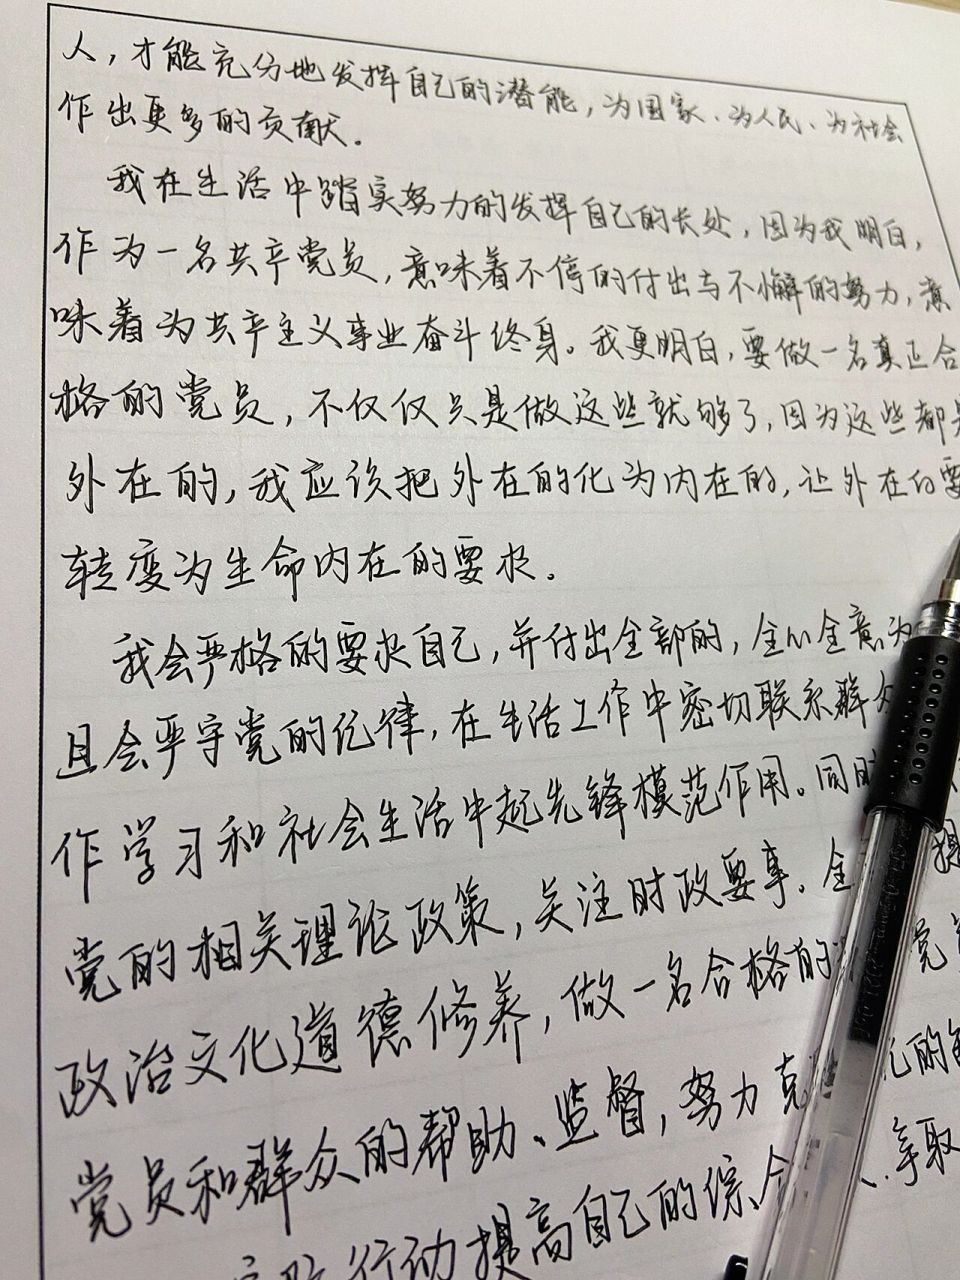 人，才能充分地发挥自己的潜能，为国家、为人民、为社会
作出更多的贡献。
我在生活中踏实努力的发挥自己的长处，因为我明白，
作为一名共产党员，意味着不停的付出与不懈的努力，意
味着为共产主义事业奋斗终身。我更明白，要做一名真正合
格的党员，不仅仅只是做这些就够了，因为这些都是
外在的，我应该把外在的化为内在的，让外在的要
转变为生命内在的要求。
我会严格的要求自己，并付出全部的，全心全意为
且会严守党的纪律，在生活工作中密切联系群众
作学习和社会生活中起先锋模范作用。同时
党的相关理论政策，关注时政要事。全 提
政治文化道德修养，做一名合格的 党员
党员和群众的帮助、监督，努力克 己的
行动提高自己的综合 争取